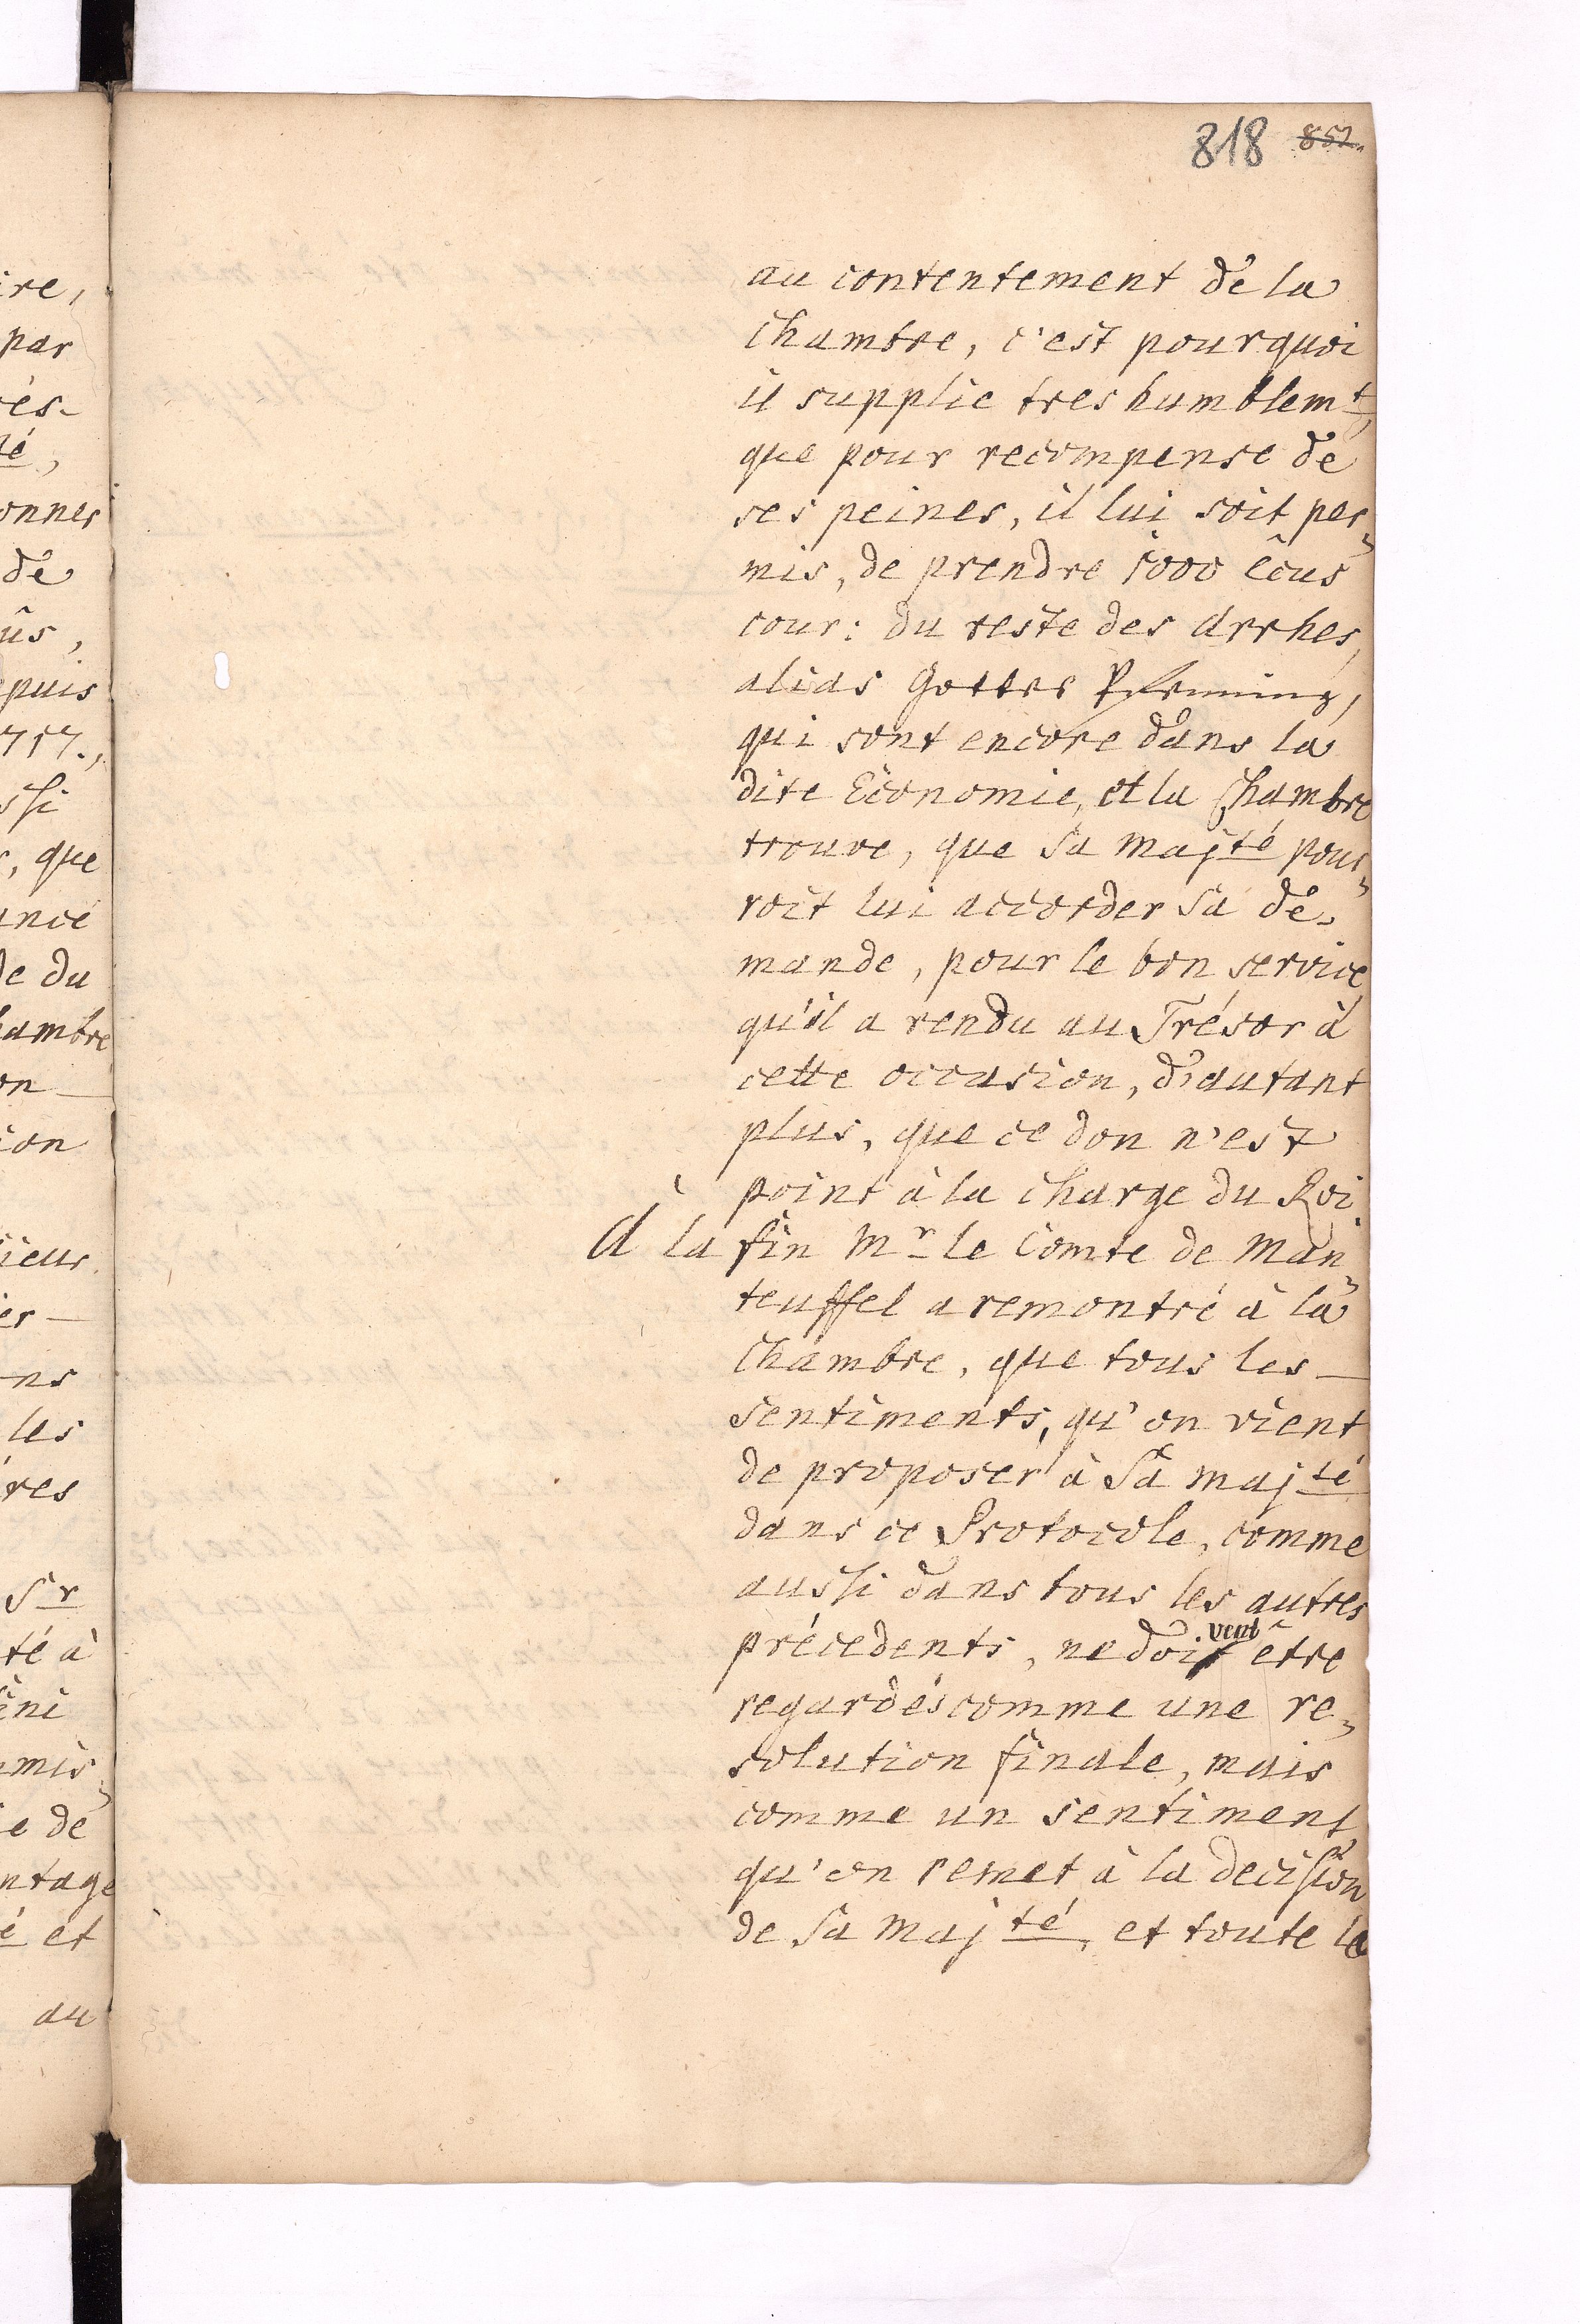 818 852.
au contentement de la
chambre, c'est pourquoi
il supplie tres humblemt,
que pour recompense de
ses peines, il lui soit per¬
mis, de prendre 1000 êcus
cour: du reste des Arrhes,
alias Gottes Pfenning,
qui sont encore dans la
dite Economie, et la Chambre
trouve, que Sa Majté pour¬
roit lui accorder sa de¬
mande, pour le bon service
qu'il a rendu au Trésor à
cette occasion, d'autant
plus, que ce don n'est
point à la charge du Roi
À la fin Mr le Comte de Man¬
teuffel a remontré à la
Chambre, que tous les
sentiments, qu'on vient
de proposer à Sa Majté
dans ce Protocole, comme
aussi dans tous les autres
précedents, ne doivent être
regardés comme une re¬
solution finale, mais
comme un sentiment
qu'on remet à la decision
de Sa Majté, et toute la
ire,
par
rés-
té,
onnes
de
ûs,
puis
ssi
, que
ance
de du
hambre
on
ion
sieur
er
ns
les
res
Sr
té à
ini
mis
e de
ntage
é et
au